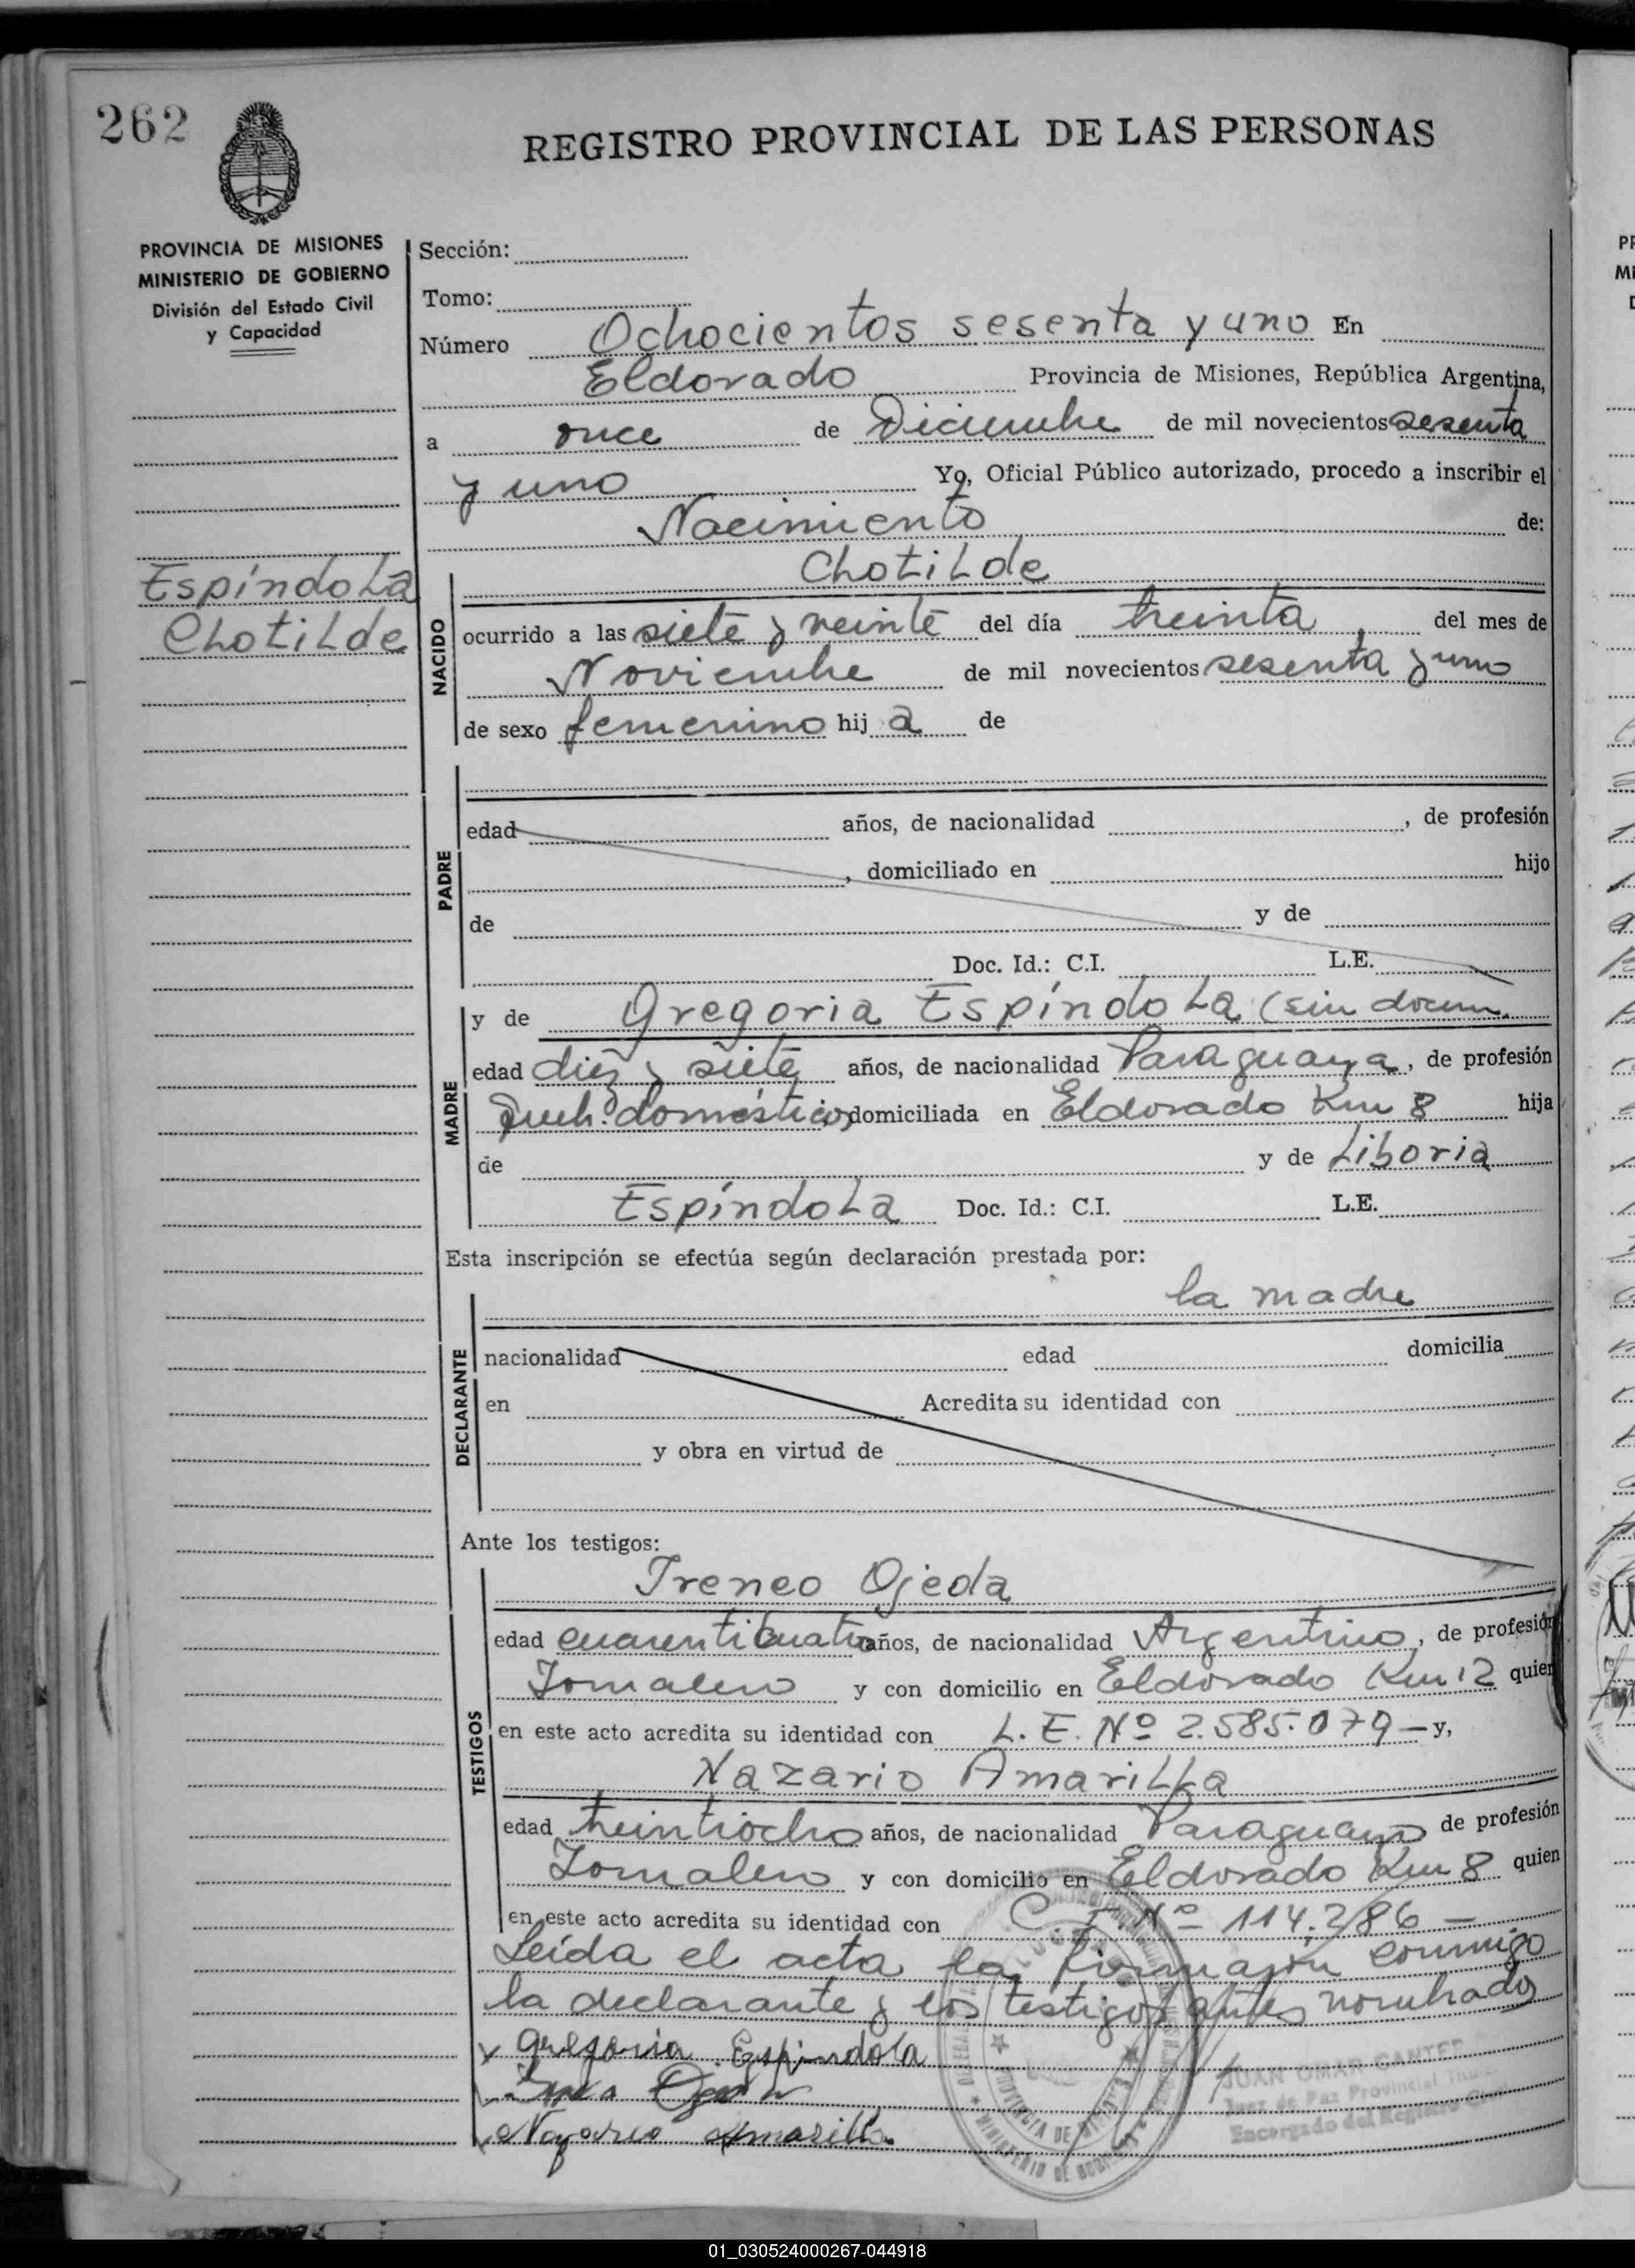 262
REGISTRO PROVINCIAL DE LAS PERSONAS
PROVINCIA DE MISIONES
MINISTERIO DE GOBIERNO
División del Estado Civil
y Capacidad
Espíndola
Clotilde
Sección:
Tomo:
Número Ochocientos sesenta y uno En
Eldorado Provincia de Misiones, República Argentina,
a once de Diciembre de mil novecientos sesenta
y uno Yo, Oficial Público autorizado, procedo a inscribir el
Nacimiento de:
NACIDO
Clotilde
ocurrido a las siete y veinte del día treinta del mes de
Noviembre de mil novecientos sesenta y uno
de sexo femenino hij a de
PADRE
edad años, de nacionalidad , de profesión
, domiciliado en hijo
de y de
Doc. Id.: C.I. L.E.
MADRE
y de Gregoria Espíndola (sin docum.
edad diez y siete años, de nacionalidad Paraguaya, de profesión
Queh. domésticos domiciliada en Eldorado Km 8 hija
de y de Liboria
Espíndola Doc. Id.: C.I. L.E.
Esta inscripción se efectúa según declaración prestada por:
DECLARANTE
la madre
nacionalidad edad domicilia
en Acredita su identidad con
y obra en virtud de
Ante los testigos:
TESTIGOS
Ireneo Ojeda
edad cuarenticuatro años, de nacionalidad Argentino, de profesión
Jornalero y con domicilio en Eldorado Km 12 quien
en este acto acredita su identidad con L. E. Nº 2.585.079 — y,
Nazario Amarilla
edad treintiocho años, de nacionalidad Paraguayo de profesión
Jornalero y con domicilio en Eldorado Km 8 quien
en este acto acredita su identidad con C. I. Nº 114.286 —
Leída el acta la firmaron conmigo
la declarante y los testigos antes nombrados
x gregoria Espindola
Ojeda
Nazario Amarilla
JUAN OMAR CANTER
Juez de Paz Provincial
Encargado del Registro Civil
PROVINCIA DE MISIONES
MINISTERIO DE GOBIERNO
01_030524000267-044918